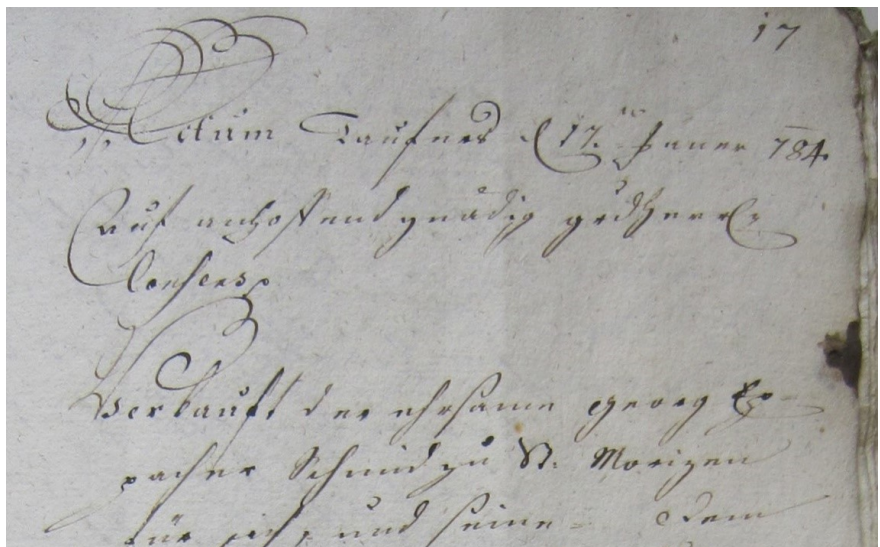 17
Actum Taufers d 17.ten Jener 784.
Auf anhoffend gnädig grdherrl:
Consens
Verkauft der ehrsame georg
pacher Schmid zu St. Morizen
für sich, und seine= dem